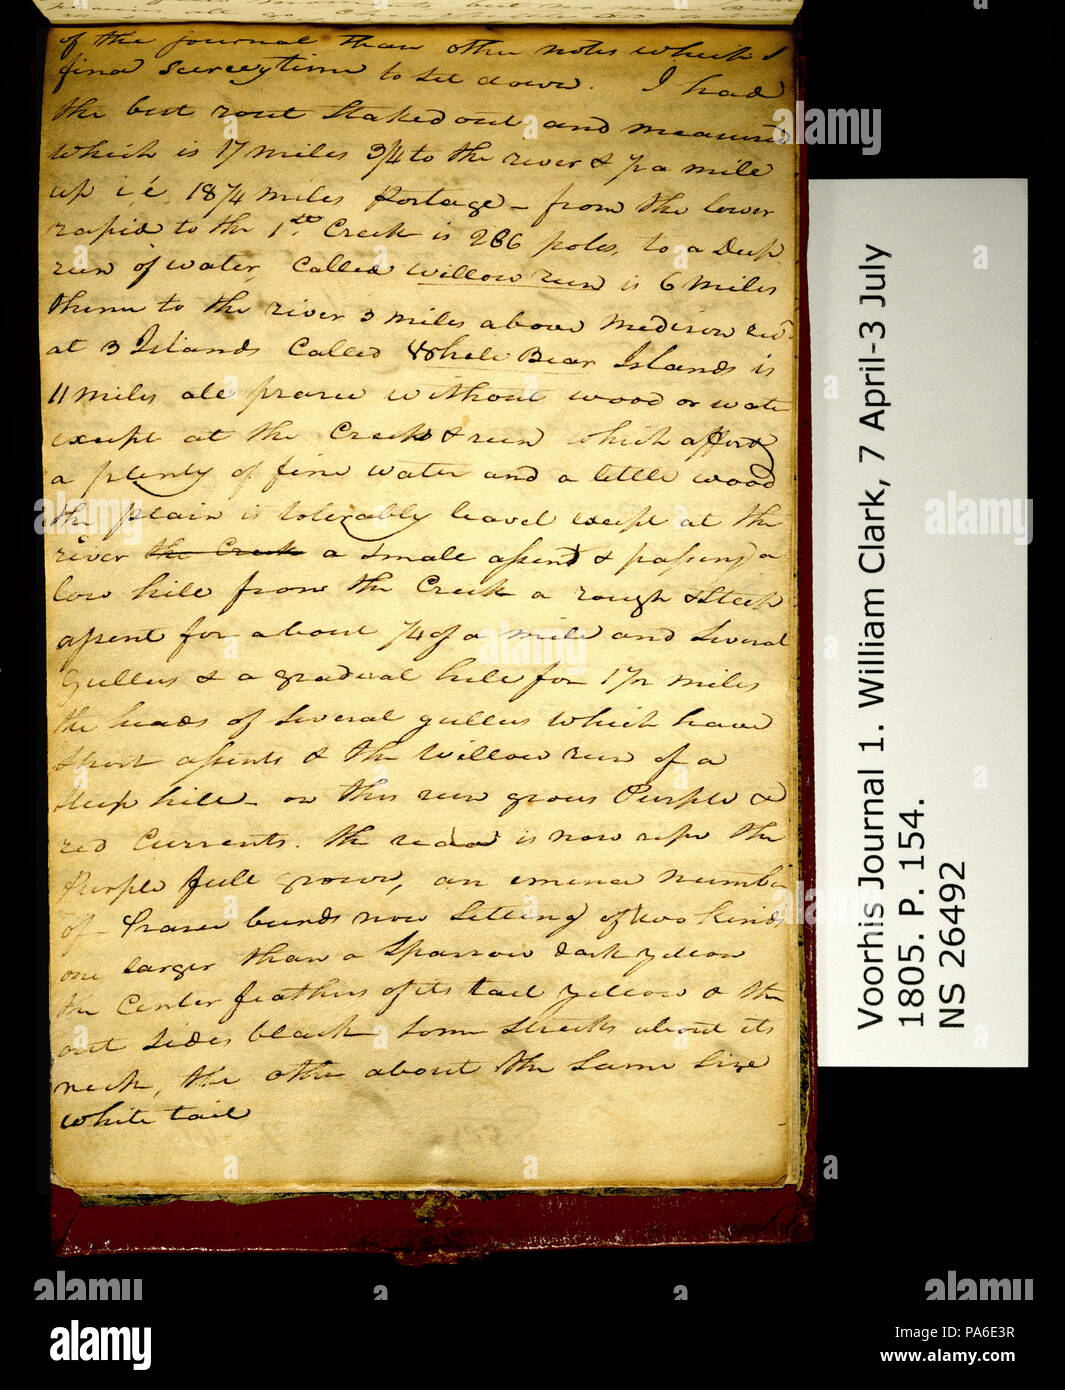 of the journal than other notes which I
find scerceytime to set down. I had
the best rout Staked out and measured
which is 17 miles 3/4 to the river & 1/2 a mile
up i,'e, 18 1/4 miles Portage - from the lower
rapid to the 1st Creek is 286 poles, to a Deep
run of water, Called Willow run is 6 miles
thence to the river 3 miles above Medison riv.
at 3 Islands Called White Bear Islands is
11 miles all prarie without wood or water
except at the Creek & run which afford
a plenty of fine water and a little wood
the plain is tolerably leavel except at the
river the Creek a small assent & passing a
low hill from the Creek a rough & Steep
assent for about 1/4 of a mile and Several
Gullies & a gradual hill for 1 1/2 miles
the heads of Several gullies which have
Short assents & the Willow run of a
Steep hill - on this run grows Purple &
red Currents. the red is now ripe the
Purple full grown, an emence number
of Prarie burds now Setting of two kinds
one larger than a Sparrow dark yellow
the Center feathers of its tail yellow & the
out sides black Some Streeks about its
neck, the other about the Same Size
White tail
Voorhis Journal 1. William Clark, 7 April-3 July
1805. P. 154.
NS 26492
alamy
PA6E3R
www.alamy.com